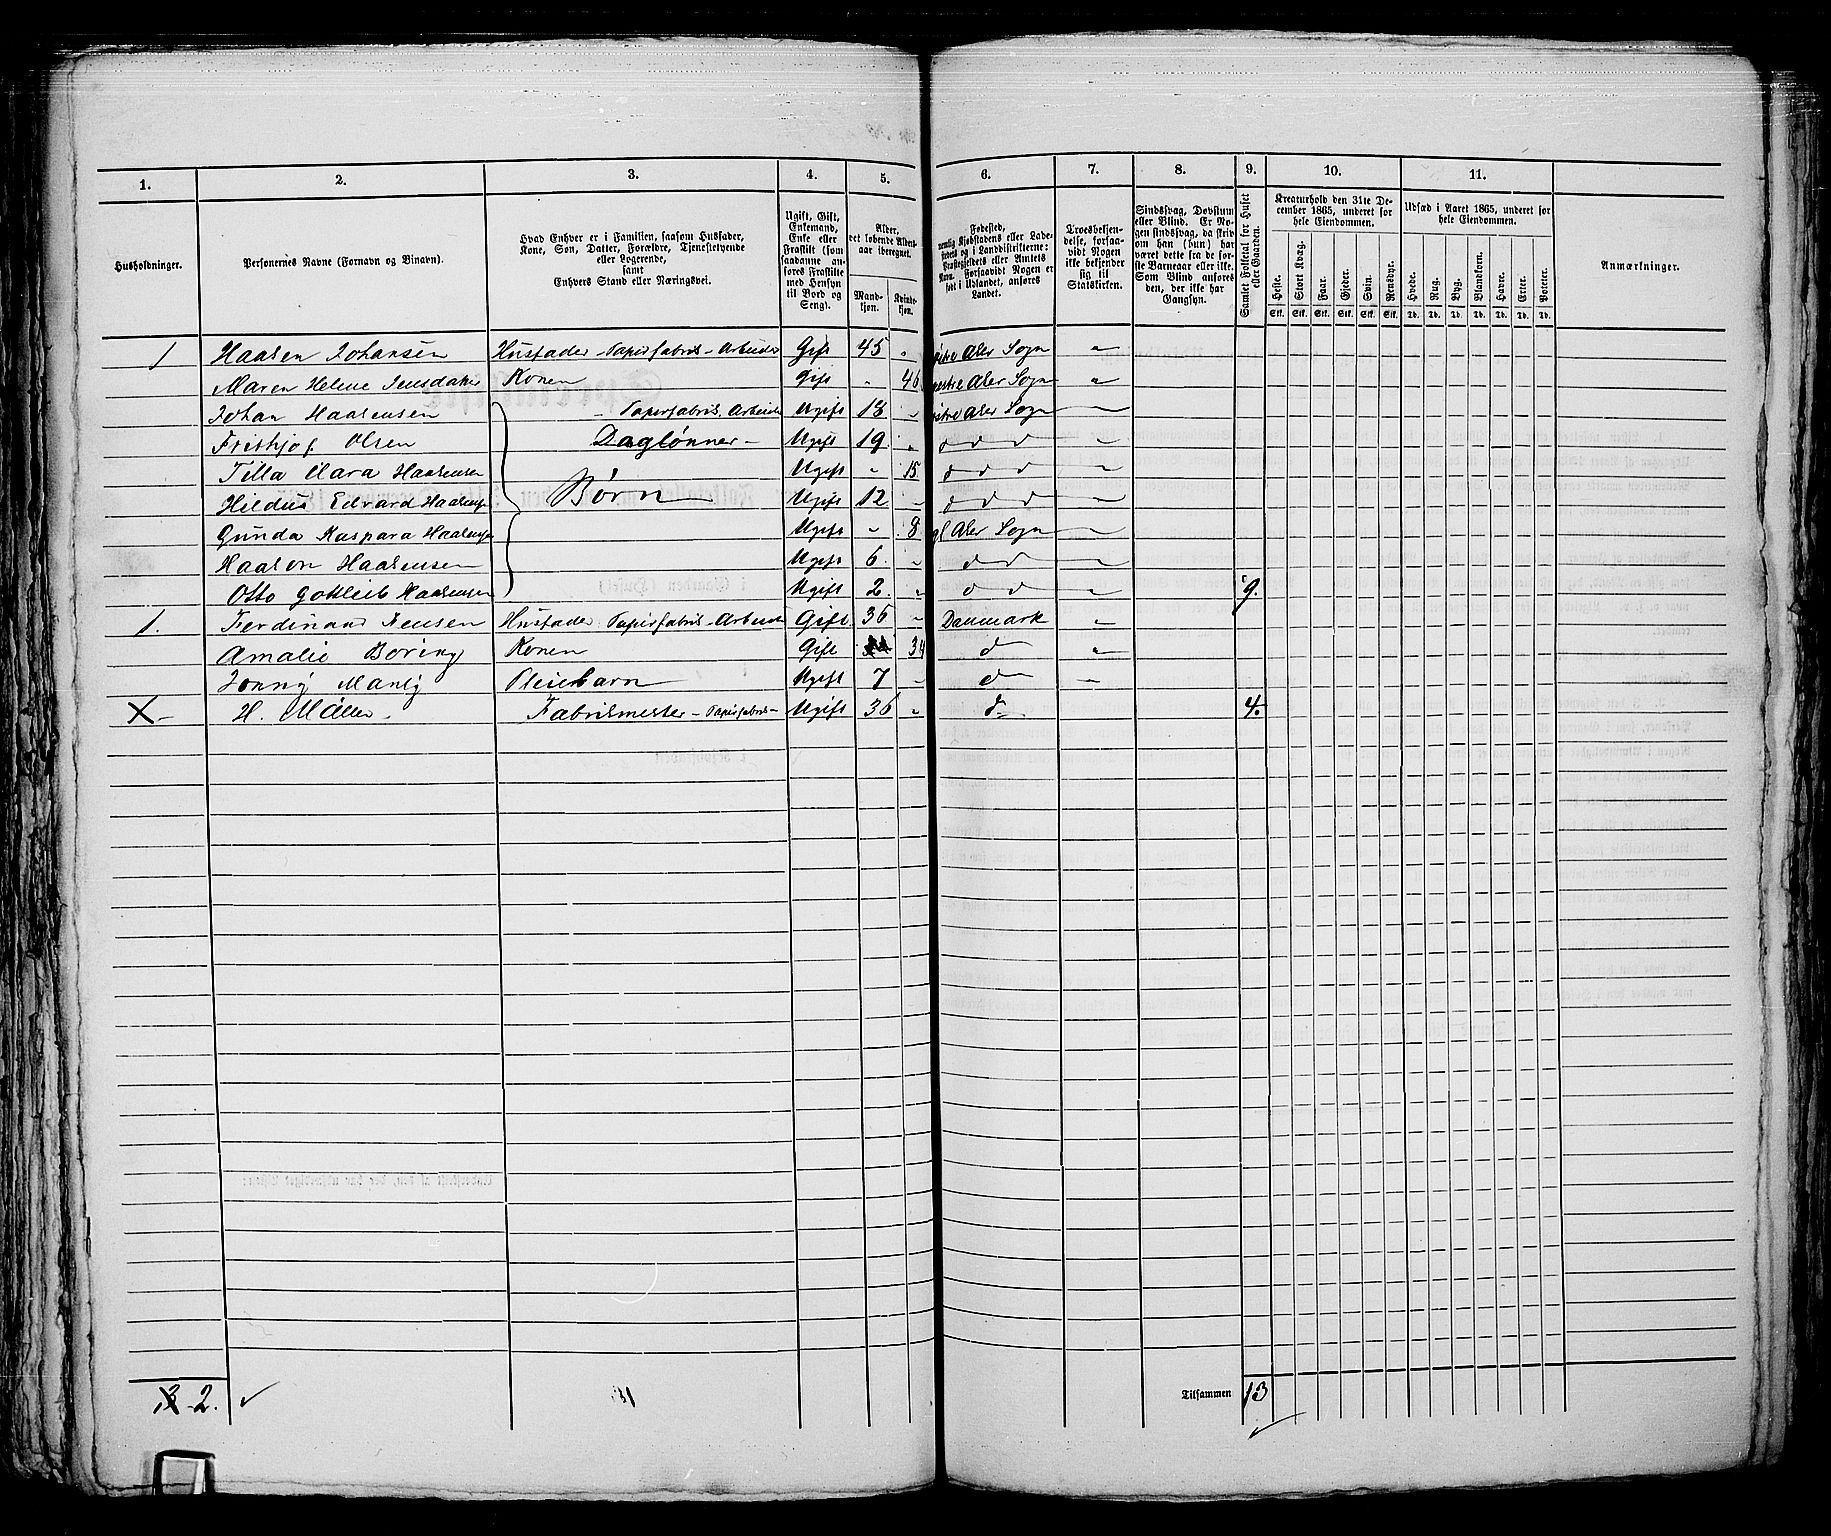 1. 2. 3. 4. 5. 6. 7. 8. 9. 10. 11.
Husholdninger.
Personernes Navne (Fornavn og Binavn).
Hvad Enhver er i Familien, saasom Husfader,
Kone, Søn, Datter, Forældre, Tjenestetyende
eller Logerende,
samt
Enhvers Stand eller Næringsvei.
Ugift, Gift,
Enkemand,
Enke eller
Fraskilt (som
saadanne an-
føres Fraskilte
med Hensyn
til Bord og
Seng).
Alder,
det løbende Alders-
aar iberegnet.
Mand-
kjøn.
Kvinde-
kjøn.
Fødested,
nemlig Kjøbstadens eller Lade-
stedets og i Landdistrikterne:
Præstegjeldets eller Amtets
Navn. Forsaavidt Nogen er
født i Udlandet, anføres
Landet.
Troesbekjen-
delse, forsaa-
vidt Nogen
ikke bekjender
sig til
Statskirken.
Sindssvag, Døvstum
eller Blind. Er No-
gen sindssvag, da skriv
om han (hun) har
været dette fra de før-
ste Barneaar eller ikke.
Som Blind anføres
den, der ikke har
Gangsyn.
Samlet Folketal for Huset
eller Gaarden.
Kreaturhold den 31te De-
cember 1865, underet for
hele Eiendommen.
Heste. Stort Kvæg. Faar. Gjeder. Svin. Rensdyr.
Stk. Stk. Stk. Stk. Stk. Stk.
Udsæd i Aaret 1865, underet for
hele Eiendommen.
Hvede. Rug. Byg. Blandkorn. Havre. Erter. Poteter.
Td. Td. Td. Td. Td. Td. Td.
Anmærkninger.
1 Haagen Johansen Husfader - Papirfabrik - Arbeider Gift 45 " Østre Aker Sogn "
Maren Helene Jensdatter Konen Gift " 46 vestre Aker Sogn "
Johan Haagensen - Papirfabrik. Arbeider Ugift 18 " østre Aker Sogn
Frithjof Olsen Daglønner - Ugift 19 " d d d
Tilla Mara Haagensen Ugift " 15 d d d
Hildus Edvard Haagensen Børn Ugift 12 " d d d
Gunda Kaspara Haagensen Ugift " 8 gl Aker Sogn
Haagon Haagensen Ugift 6 " d d
Otto Gottlieb Haagensen Ugift 2 " d d " 9.
1. Ferdinand Jensen Husfader Papirfabrik - Arbeider Gift 36 " Danmark "
Amalie Boring Konen Gift 34 d "
Jonny Manly Pleiebarn Ugift 7 " d -
X - H. Møller Fabrikmester - Papirfabrik - Ugift 36 " d 4.
2.
Tilsammen 13